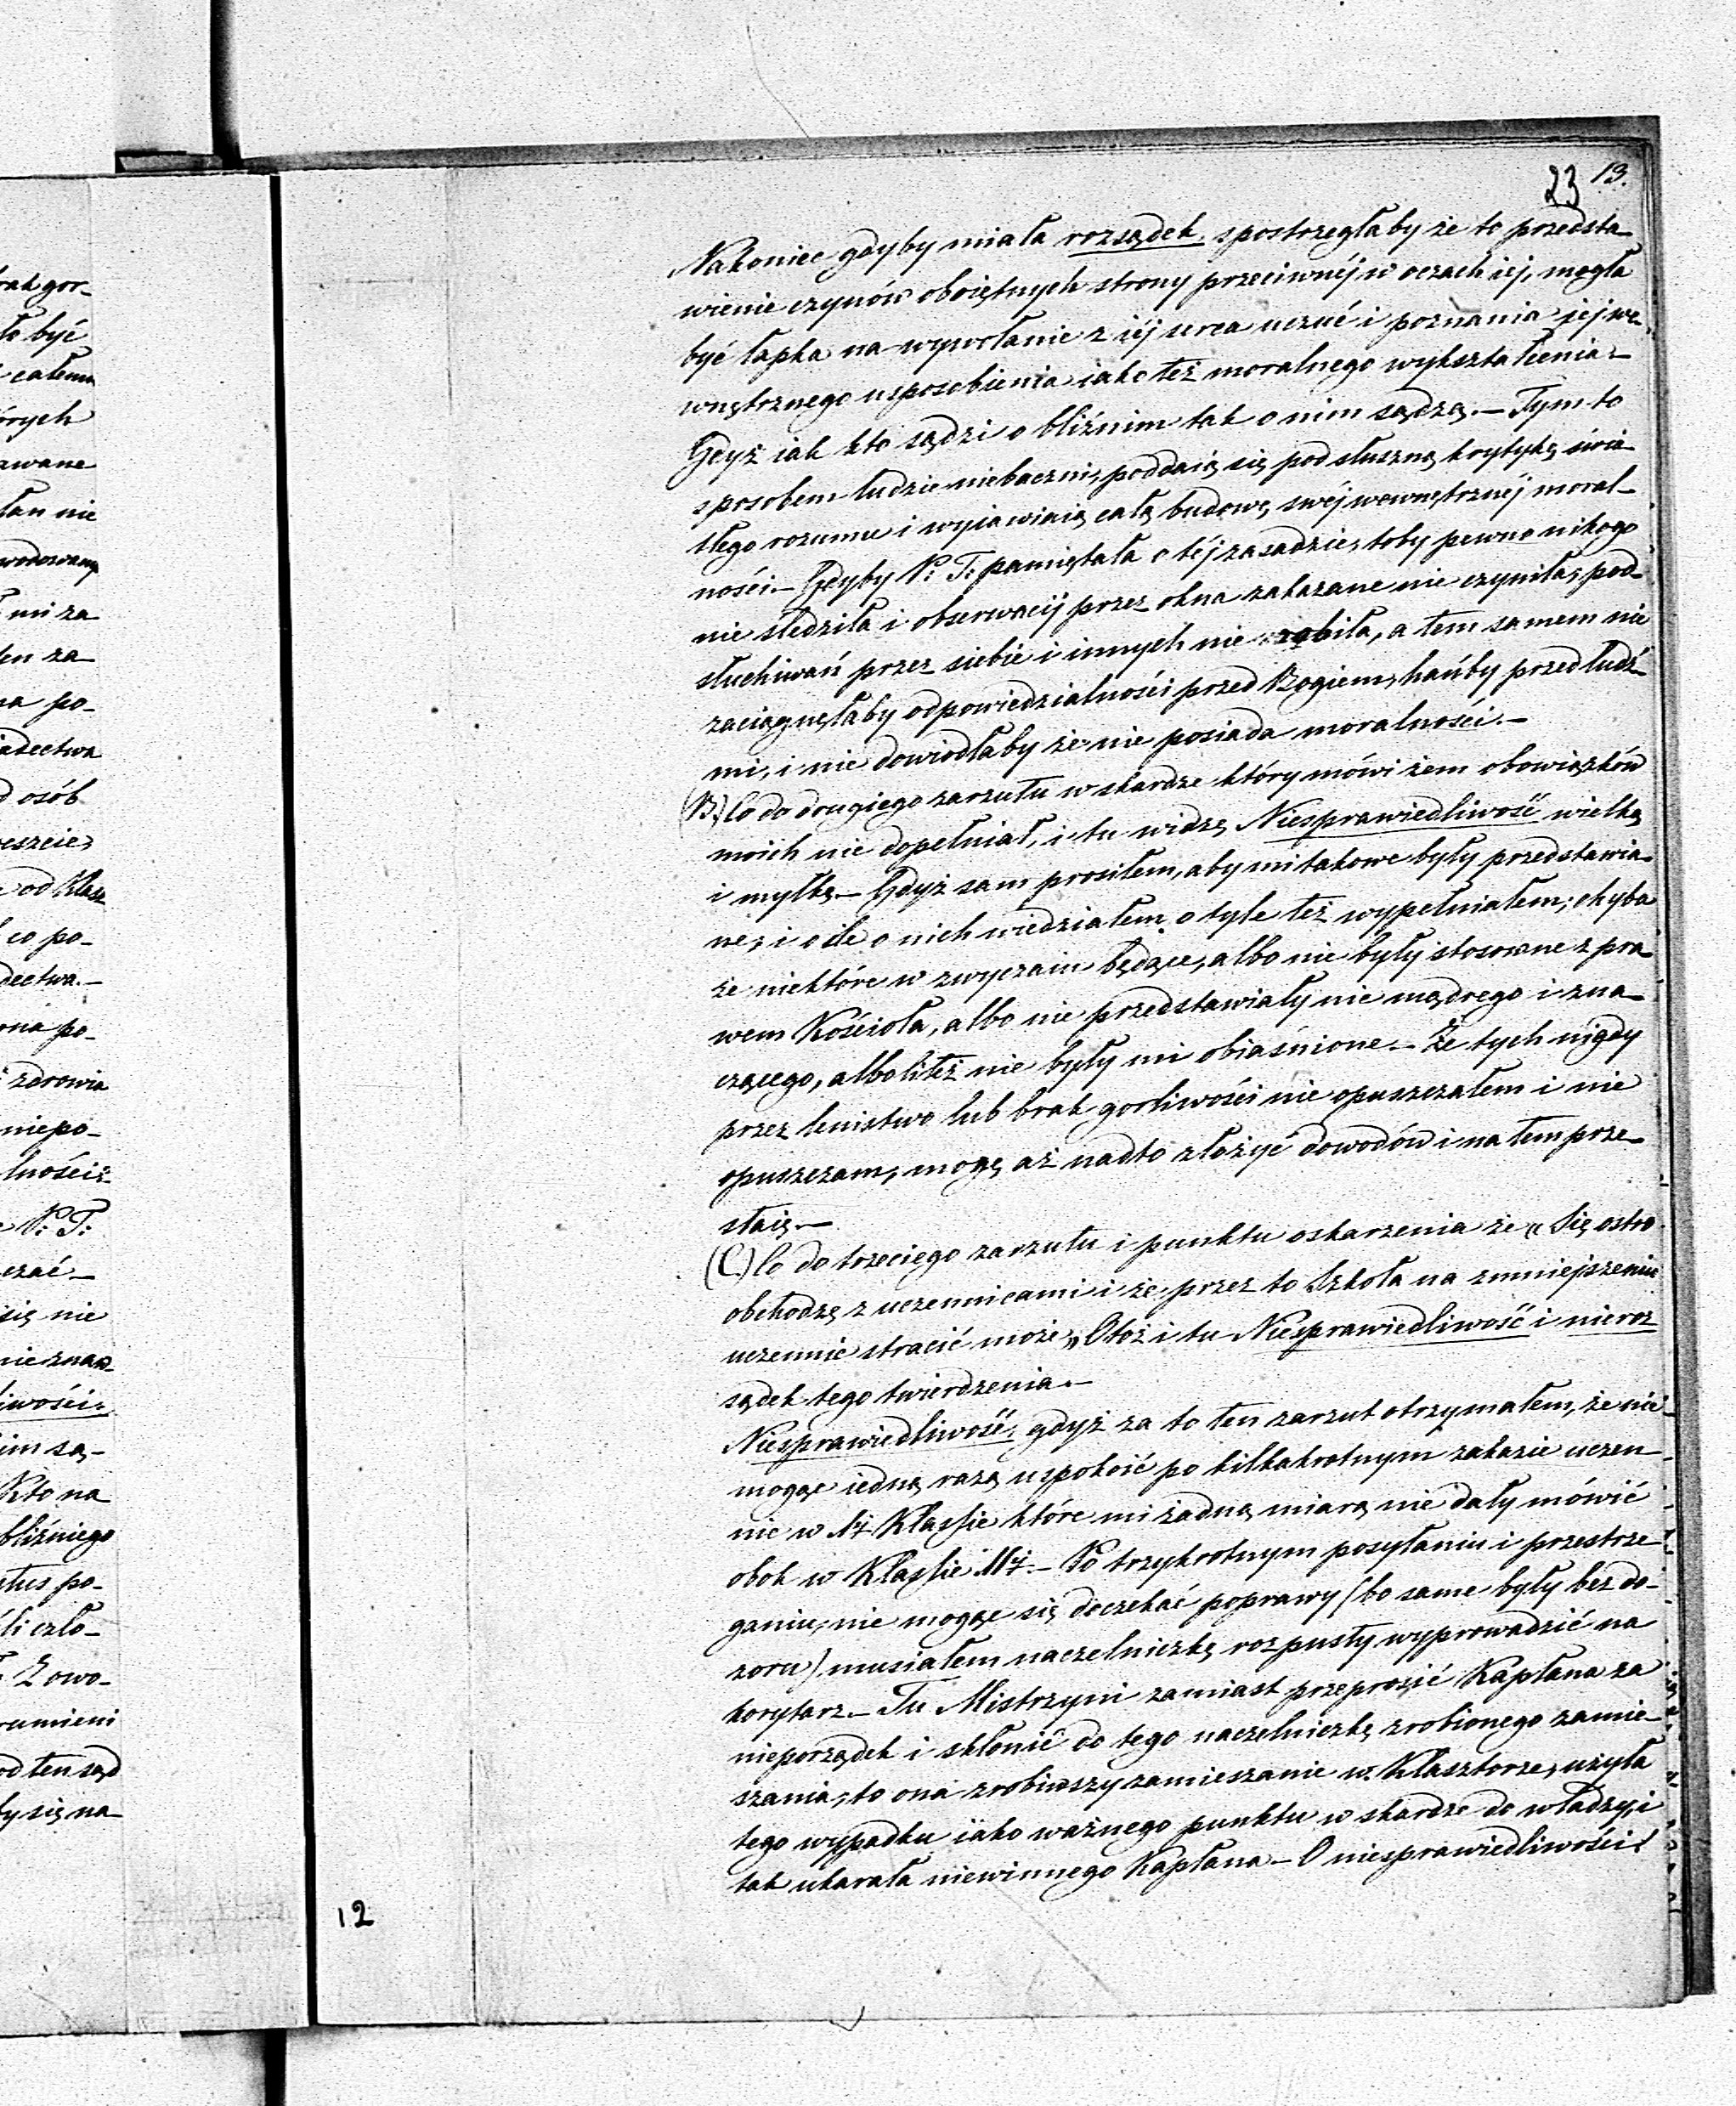 rak gor-
to być
całemu
órych
awane
łan nie
wodowany
mi za
ten za-
na po-
iadectwa
d osób
eszcie,
e od Klasz
co po-
dectwa.-
ona po-
zdrowia
niepo-
lności:
P: T:
czać-
się nie
nie zna-
iwości.
im są-
Kto na
bliźniego
po-
li czło-
Z owo-
rumieni
od ten sąd
ły się na
23 13.
Nakoniec gdyby miała rozsądek spostrzegłaby że to przedsta-
wienie czynów oboiętnych strony przeciwnéj w oczach iéj, mogła
być łapka na wywołanie z iéj serca uczuć i poznania iéj we-
wnętrznego usposobienia iako też moralnego wykształcenia.-
Gdyż iak kto sądzi o bliźnim tak o nim sądzą.- Tym to
sposobem ludzie niebaczni, poddaią się pod słuszną krytykę świa-
tłego rozumu i wyiawiaią całą budowę, swéj wewnętrznéj moral-
ności.- Gdyby P: T: pamiętała o téj zasadzie, toby pewno nikogo
nie śledziła i obserwacij przez okna zakazane nie czyniła, pod-
słuchiwań przez siebie i innych nie robiła, a tem samem nie
zaciągnęłaby odpowiedzialności przed Bogiem, hańby przed ludź-
mi, i nie dowiodłaby że nie posiada moralności.-
(B.) Co do drugiego zarzutu w skardze który mówi żem obowiązków
moich nie dopełniał, i tu widzę Niesprawiedliwość wielką
i myłkę.- Gdyż sam prosiłem, aby mi takowe były przedstawia-
ne, i o ile o nich wiedziałem, o tyle też wypełniałem; chyba
że niektóre w zwyczaiu będące, albo nie były stosowne z pra-
wem Kościoła, albo nie przedstawiały nic mądrego i zna-
czącego, albo liteż nie były mi obiaśnione.- Że tych nigdy
przez lenistwo lub brak gorliwości nie opuszczałem i nie
opuszczam, mogę aż nadto złożyć dowodów i na tem prze-
staię.-
(C.) Co do trzeciego zarzutu i punktu oskarzenia że „Się ostro
obchodzę z uczennicami i że przez to Szkoła na zmniejszenie
uczennic stracić może„ Otoż i tu Niesprawiedliwość i nieroz
sądek tego twierdzenia.-
Niesprawiedliwość, gdyż za to ten zarzut otrzymałem, że nie
mogąc iedną razą uspokoić po kilkakrotnym zakazie uczen-
nic w Klassie które mi żadną miarą nie dały mówić
obok w Klassie.- Po trzykrotnym posyłaniu i przestrze-
ganiu, nie mogąc się doczekać poprawy (bo same były bez do-
zoru) musiałem naczelniczkę rozpusty wyprowadzić na
korytarz.- Tu Mistrzyni zamiast przeprosić Kapłana za
nieporządek i skłonić do tego naczelniczkę zrobionego zamie-
szania, to ona zrobiwszy zamieszanie w Klasztorze, użyła
tego wypadku iako ważnego punktu w skardze do władzy, i
tak ukarała niewinnego Kapłana.- O niesprawiedliwości!
12